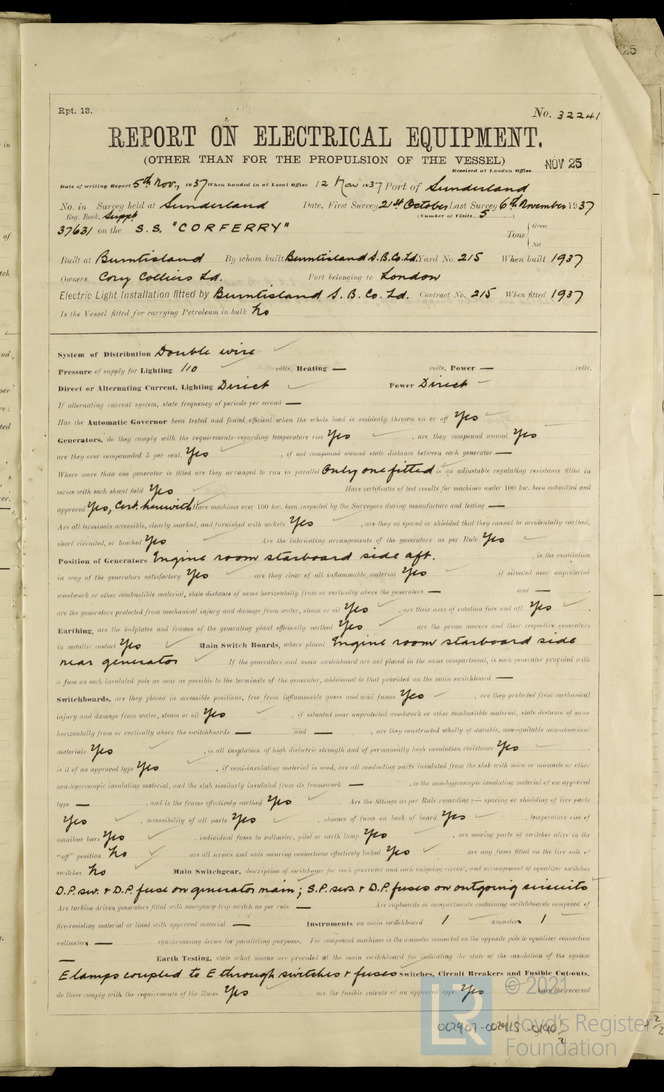 Rpt. 13.
No. 32241
REPORT ON ELECTRICAL EQUIPMENT.
(OTHER THAN FOR THE PROPULSION OF THE VESSEL)
Received at London Office NOV 25
Date of writing Report 5th Nov, 1937 When handed in at Local Office 12 Nov 1937 Port of Sunderland
No. in Survey held at Sunderland Date, First Survey 21st October Last Survey 6th November 1937
Reg. Book. Suppt (Number of Visits 5)
37631 on the S.S. "CORFERRY" Tons { Gross Net
Built at Burntisland By whom built Burntisland S.B.Co.Ld. Yard No. 215 When built 1937
Owners Cory Colliers Ld. Port belonging to London
Electric Light Installation fitted by Burntisland S.B.Co.Ld. Contract No. 215 When fitted 1937
Is the Vessel fitted for carrying Petroleum in bulk No
System of Distribution Double wire
Pressure of supply for Lighting 110 volts, Heating — volts, Power — volts,
Direct or Alternating Current, Lighting Direct Power Direct
If alternating current system, state frequency of periods per second —
Has the Automatic Governor been tested and found efficient when the whole load is suddenly thrown on or off Yes
Generators, do they comply with the requirements regarding temperature rise Yes , are they compound wound Yes
are they over compounded 5 per cent. Yes , if not compound wound state distance between each generator —
Where more than one generator is fitted are they arranged to run in parallel Only one fitted , is an adjustable regulating resistance fitted in
series with each shunt field Yes Have certificates of test results for machines under 100 kw. been submitted and
approved Yes, Cert. herewith Have machines over 100 kw. been inspected by the Surveyors during manufacture and testing —
Are all terminals accessible, clearly marked, and furnished with sockets Yes , are they so spaced or shielded that they cannot be accidentally earthed,
short circuited, or touched Yes Are the lubricating arrangements of the generators as per Rule Yes
Position of Generators Engine room starboard side aft. , is the ventilation
in way of the generators satisfactory Yes are they clear of all inflammable material Yes , if situated near unprotected
woodwork or other combustible material, state distance of same horizontally from or vertically above the generators — and — ,
are the generators protected from mechanical injury and damage from water, steam or oil Yes , are their axes of rotation fore and aft Yes
Earthing, are the bedplates and frames of the generating plant efficiently earthed Yes are the prime movers and their respective generators
in metallic contact Yes Main Switch Boards, where placed Engine room starboard side
near generator If the generators and main switchboard are not placed in the same compartment, is each generator provided with
a fuse on each insulated pole as near as possible to the terminals of the generator, additional to that provided on the main switchboard —
Switchboards, are they placed in accessible positions, free from inflammable gases and acid fumes Yes , are they protected from mechanical
injury and damage from water, steam or oil Yes , if situated near unprotected woodwork or other combustible material, state distance of same
horizontally from or vertically above the switchboards — and — , are they constructed wholly of durable, non-ignitable non-absorbent
materials Yes , is all insulation of high dielectric strength and of permanently high insulation resistance Yes
is it of an approved type Yes , if semi-insulating material is used, are all conducting parts insulated from the slab with mica or micanite or other
non-hygroscopic insulating material, and the slab similarly insulated from its framework — , is the non-hygroscopic insulating material of an approved
type — , and is the frame effectively earthed Yes Are the fittings as per Rule regarding:— spacing or shielding of live parts
Yes , accessibility of all parts Yes , absence of fuses on back of board Yes , temperature rise of
omnibus bars Yes , individual fuses to voltmeter, pilot or earth lamp Yes , are moving parts of switches alive in the
"off" position No are all screws and nuts securing connections effectively locked Yes , are any fuses fitted on the live side of
switches No Main Switchgear, description of switchgear for each generator and each outgoing circuit, and arrangement of equaliser switches
D.P. sw. + D.P. fuse on generator main; S.P. sws. + D.P. fuses on outgoing circuits
Are turbine driven generators fitted with emergency trip switch as per rule — Are cupboards or compartments containing switchboards composed of
fire-resisting material or lined with approved material — Instruments on main switchboard 1 ammeters 1
voltmeters — synchronising device for paralleling purposes. For compound machines is the ammeter connected on the opposite pole to equaliser connection
— Earth Testing, state what means are provided at the main switchboard for indicating the state of the insulation of the system
E lamps coupled to E through switches + fuses Switches, Circuit Breakers and Fusible Cut-outs,
do these comply with the requirements of the Rules Yes are the fusible cutouts of an approved type Yes have the reversed
© 2021
Lloyd's Register
Foundation